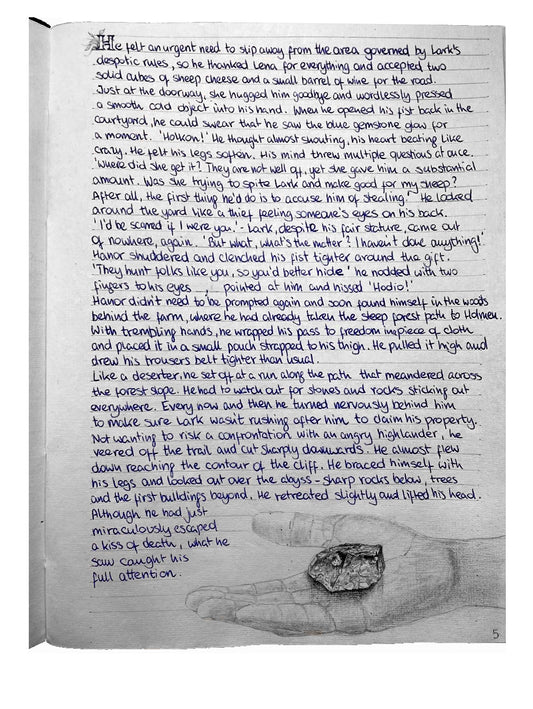 He felt an urgent need to slip away from the area governed by Lark's
despotic rules, so he thanked Lena for everything and accepted two
solid cubes of sheep cheese and a small barrel of wine for the road.
Just at the doorway, she hugged him goodbye and wordlessly pressed
a smooth cold object into his hand. When he opened his fist back in the
courtyard, he could swear that he saw the blue gemstone glow for
a moment. 'Holkon!' He thought almost shouting, his heart beating like
crazy. He felt his legs soften. His mind threw multiple questions at once.
'Where did she get it? They are not well off, yet she gave him a substantial
amount. Was she trying to spite Lark and make good for my sheep?
After all, the first thing he'd do is to accuse him of stealing.' He looked
around the yard like a thief feeling someone's eyes on his back.
'I'd be scared if I were you.' - Lark, despite his fair stature, came out
of nowhere, again. 'But what, what's the matter? I haven't done anything!'
Hanor shuddered and clenched his fist tighter around the gift.
'They hunt folks like you, so you'd better hide' he nodded with two
fingers to his eyes , pointed at him and hissed 'Hadio!'
Hanor didn't need to be prompted again and soon found himself in the woods
behind the farm, where he had already taken the steep forest path to
With trembling hands, he wrapped his pass to freedom in piece of cloth
and placed it in a small pouch strapped to his thigh. He pulled it high and
drew his trousers belt tighter than usual.
Like a deserter, he set off at a run along the path that meandered across
the forest slope. He had to watch out for stones and rocks sticking out
everywhere. Every now and then he turned nervously behind him
to make sure Lark wasn't rushing after him to claim his property.
Not wanting to risk a confrontation with an angry highlander, he
veered off the trail and cut sharply downwards. He almost flew
down reaching the contour of the cliff. He braced himself with
his legs and looked out over the abyss - sharp rocks below, trees
and the first buildings beyond. He retreated slightly and lifted his head.
Although he had just
miraculously escaped
a kiss of death, what he
saw caught his
full attention.
5